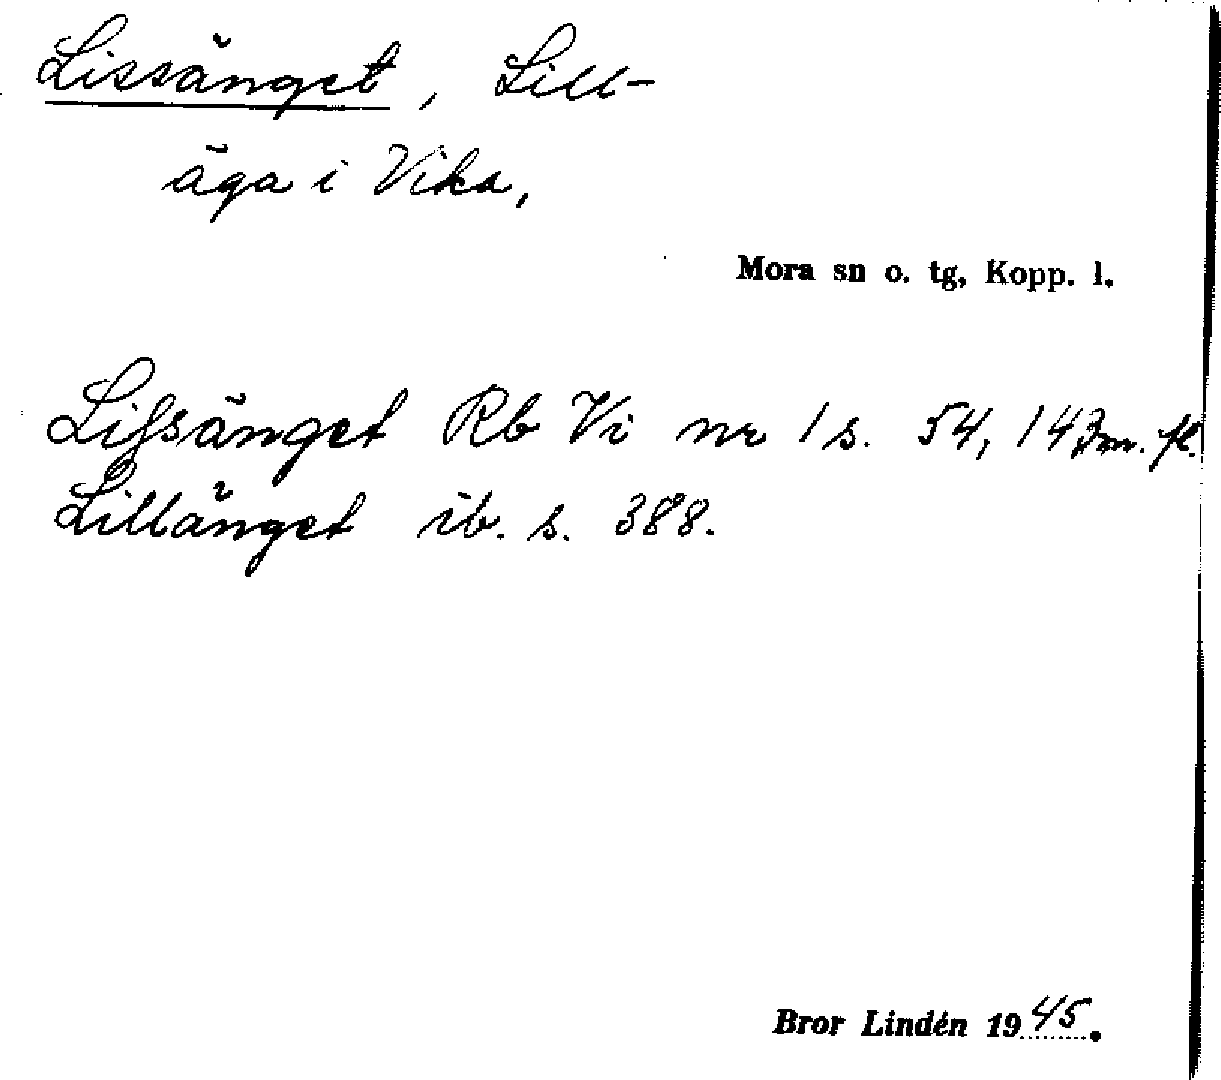 Lissänget, Lill-
äga i Vika,
Mora sn o. tg, Kopp. l.
Lifsänget Rb Vi nr 1 s. 54, 143 m. fl.
Lillänget ib. s. 388.
Bror Lindén 1945.